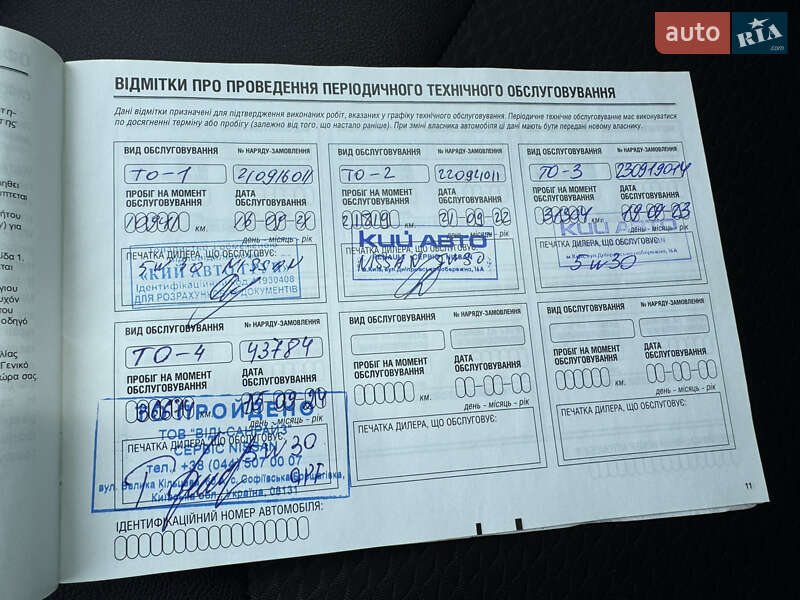 auto RIA .com
ВІДМІТКИ ПРО ПРОВЕДЕННЯ ПЕРІОДИЧНОГО ТЕХНІЧНОГО ОБСЛУГОВУВАННЯ
Дані відмітки призначені для підтвердження виконаних робіт, вказаних у графіку технічного обслуговування. Періодичне технічне обслуговування має виконуватися
по досягненні терміну або пробігу (залежно від того, що настало раніше). При зміні власника автомобіля ці дані мають бути передані новому власнику.
ВИД ОБСЛУГОВУВАННЯ № НАРЯДУ-ЗАМОВЛЕННЯ
ТО-1 210916011
ПРОБІГ НА МОМЕНТ ОБСЛУГОВУВАННЯ ДАТА ОБСЛУГОВУВАННЯ
км. 16-09-21
день – місяць – рік
ПЕЧАТКА ДИЛЕРА, ЩО ОБСЛУГОВУЄ:
5w30 NISSAN
"КИЙ АВТО
Ідентифікаційний код
ДЛЯ РОЗРАХУНКОВИХ ДОКУМЕНТІВ
ВИД ОБСЛУГОВУВАННЯ № НАРЯДУ-ЗАМОВЛЕННЯ
ТО-2 220921011
ПРОБІГ НА МОМЕНТ ОБСЛУГОВУВАННЯ ДАТА ОБСЛУГОВУВАННЯ
км. 21-09-22
день – місяць – рік
ПЕЧАТКА ДИЛЕРА, ЩО ОБСЛУГОВУЄ:
КИЙ АВТО
RENAULT СЕРВІС NISSAN
м.Київ, вул.Дніпровська набережна, 16А
NISSAN 5w30
ВИД ОБСЛУГОВУВАННЯ № НАРЯДУ-ЗАМОВЛЕННЯ
ТО-3 230919014
ПРОБІГ НА МОМЕНТ ОБСЛУГОВУВАННЯ ДАТА ОБСЛУГОВУВАННЯ
31904 км. 19-09-23
день – місяць – рік
ПЕЧАТКА ДИЛЕРА, ЩО ОБСЛУГОВУЄ:
КИЙ АВТО
м.Київ, вул.Дніпровська набережна, 16А
5w30
ВИД ОБСЛУГОВУВАННЯ № НАРЯДУ-ЗАМОВЛЕННЯ
ТО-4 43784
ПРОБІГ НА МОМЕНТ ОБСЛУГОВУВАННЯ ДАТА ОБСЛУГОВУВАННЯ
км.
день – місяць – рік
ПРОЙДЕНО
ТОВ "ВІДІ-САНРАЙЗ"
ПЕЧАТКА ДИЛЕРА, ЩО ОБСЛУГОВУЄ:
СЕРВІС NISSAN
5w30
тел. +38 (044) 507 00 07
вул. Велика Кільцева с. Софіївська Борщагівка,
Київська обл., Україна, 08131
ВИД ОБСЛУГОВУВАННЯ № НАРЯДУ-ЗАМОВЛЕННЯ
ПРОБІГ НА МОМЕНТ ОБСЛУГОВУВАННЯ ДАТА ОБСЛУГОВУВАННЯ
км.
день – місяць – рік
ПЕЧАТКА ДИЛЕРА, ЩО ОБСЛУГОВУЄ:
ВИД ОБСЛУГОВУВАННЯ № НАРЯДУ-ЗАМОВЛЕННЯ
ПРОБІГ НА МОМЕНТ ОБСЛУГОВУВАННЯ ДАТА ОБСЛУГОВУВАННЯ
км.
день – місяць – рік
ПЕЧАТКА ДИЛЕРА, ЩО ОБСЛУГОВУЄ:
ІДЕНТИФІКАЦІЙНИЙ НОМЕР АВТОМОБІЛЯ:
11